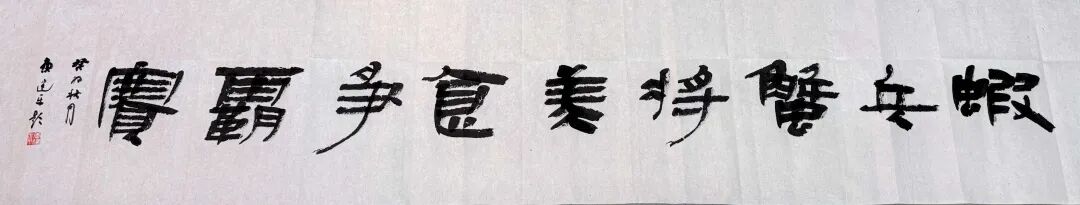 蝦兵蟹將美食爭霸賽
癸卯秋月